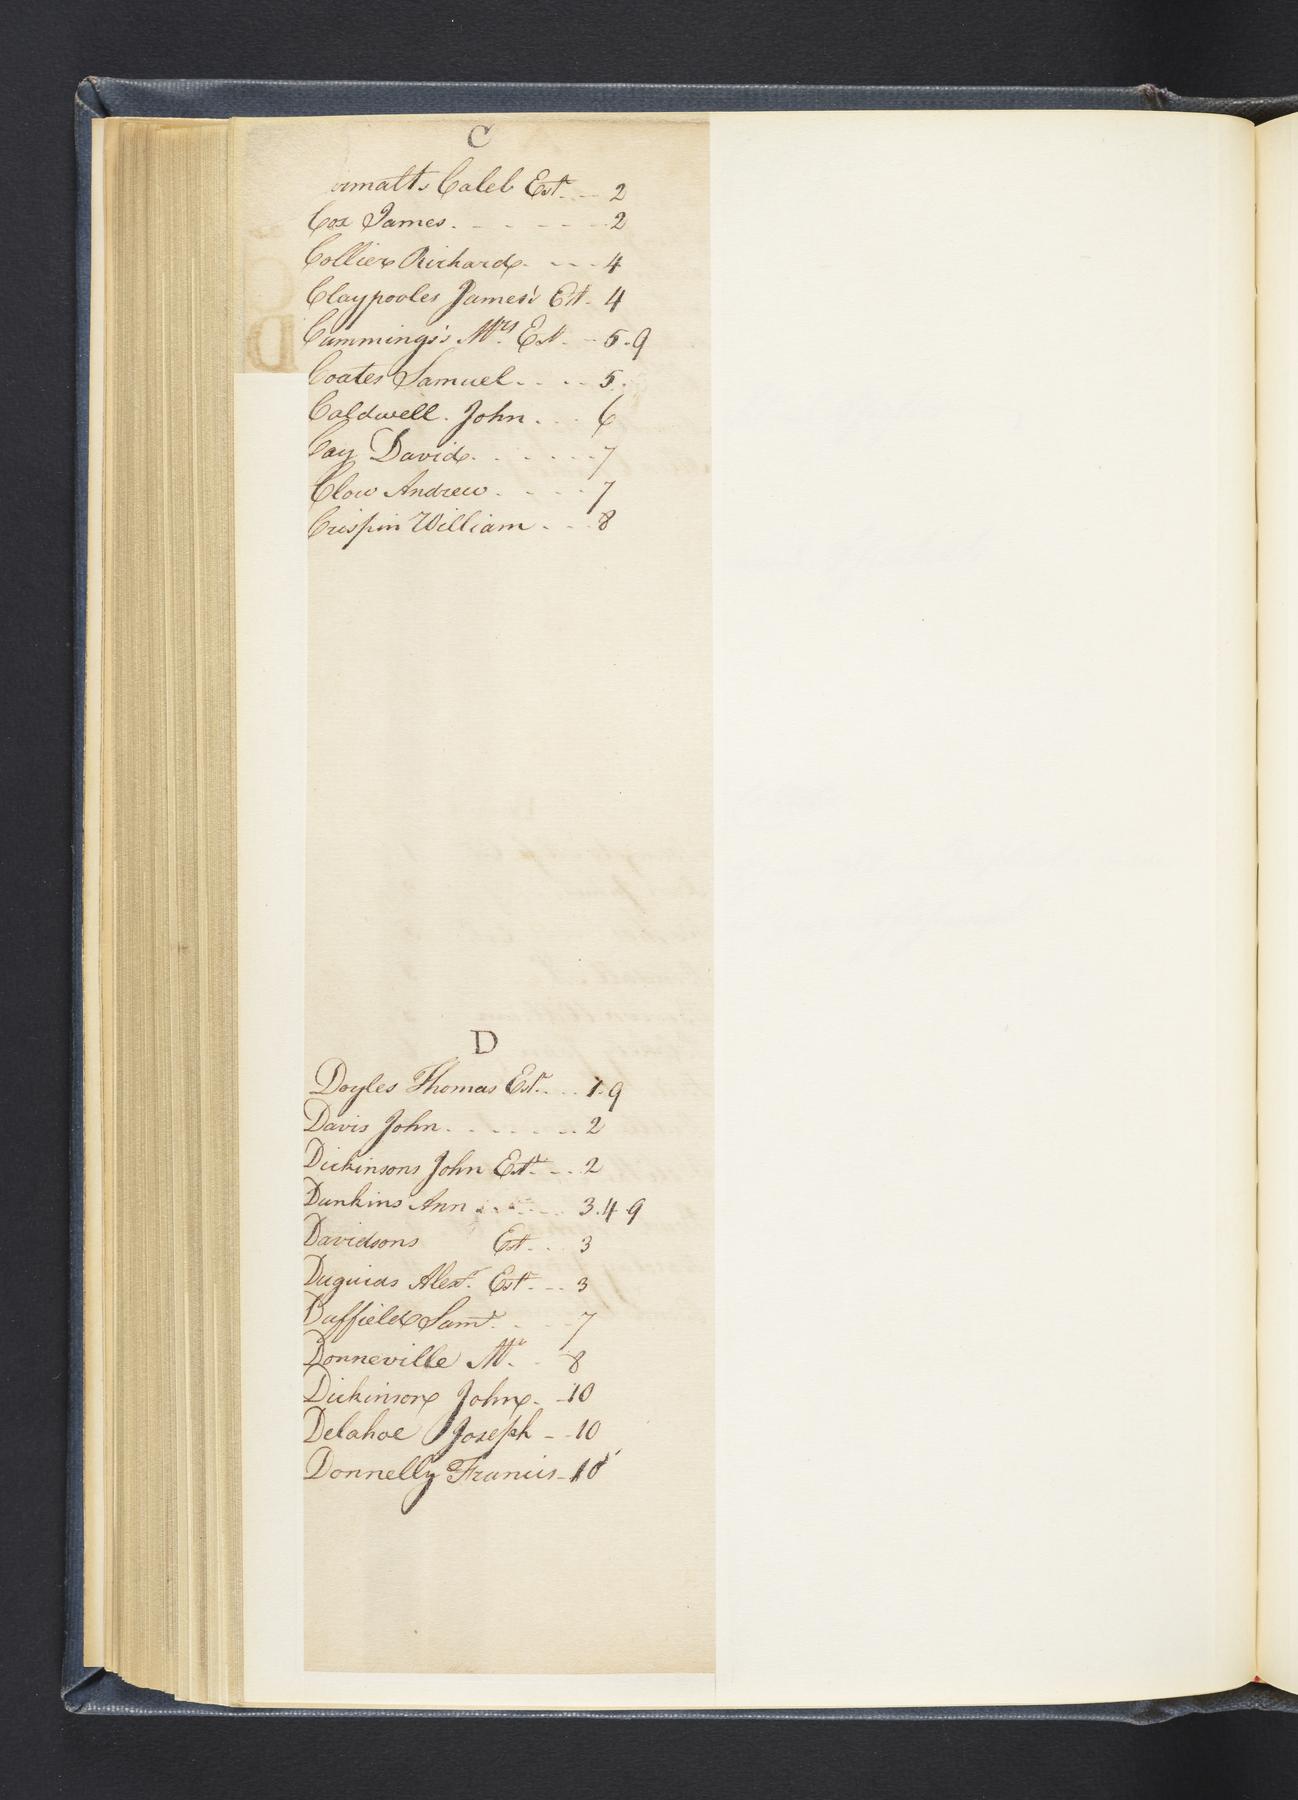 C
Caleb Est. 2
Cox James 2
Collier Richard 4
Claypooles James's Est 4
Cummings's Mrs Est. 5.9
Coates Samuel 5.
Caldwell John 6
Cay David 7
Clow Andrew 7
Crispin William 8
C
D
D
Doyles Thomas Estr. 1.9
Davis John 2
Dickinsons John Estr. 2
Dunkins Ann 3.4 9
Davidsons Est 3
Duguids Alexr. Estr. 3
Duffield Saml. 7
Donneville Mr. 8
Dickinson John 10
Delahoe Joseph 10
Donnelly Francis 10